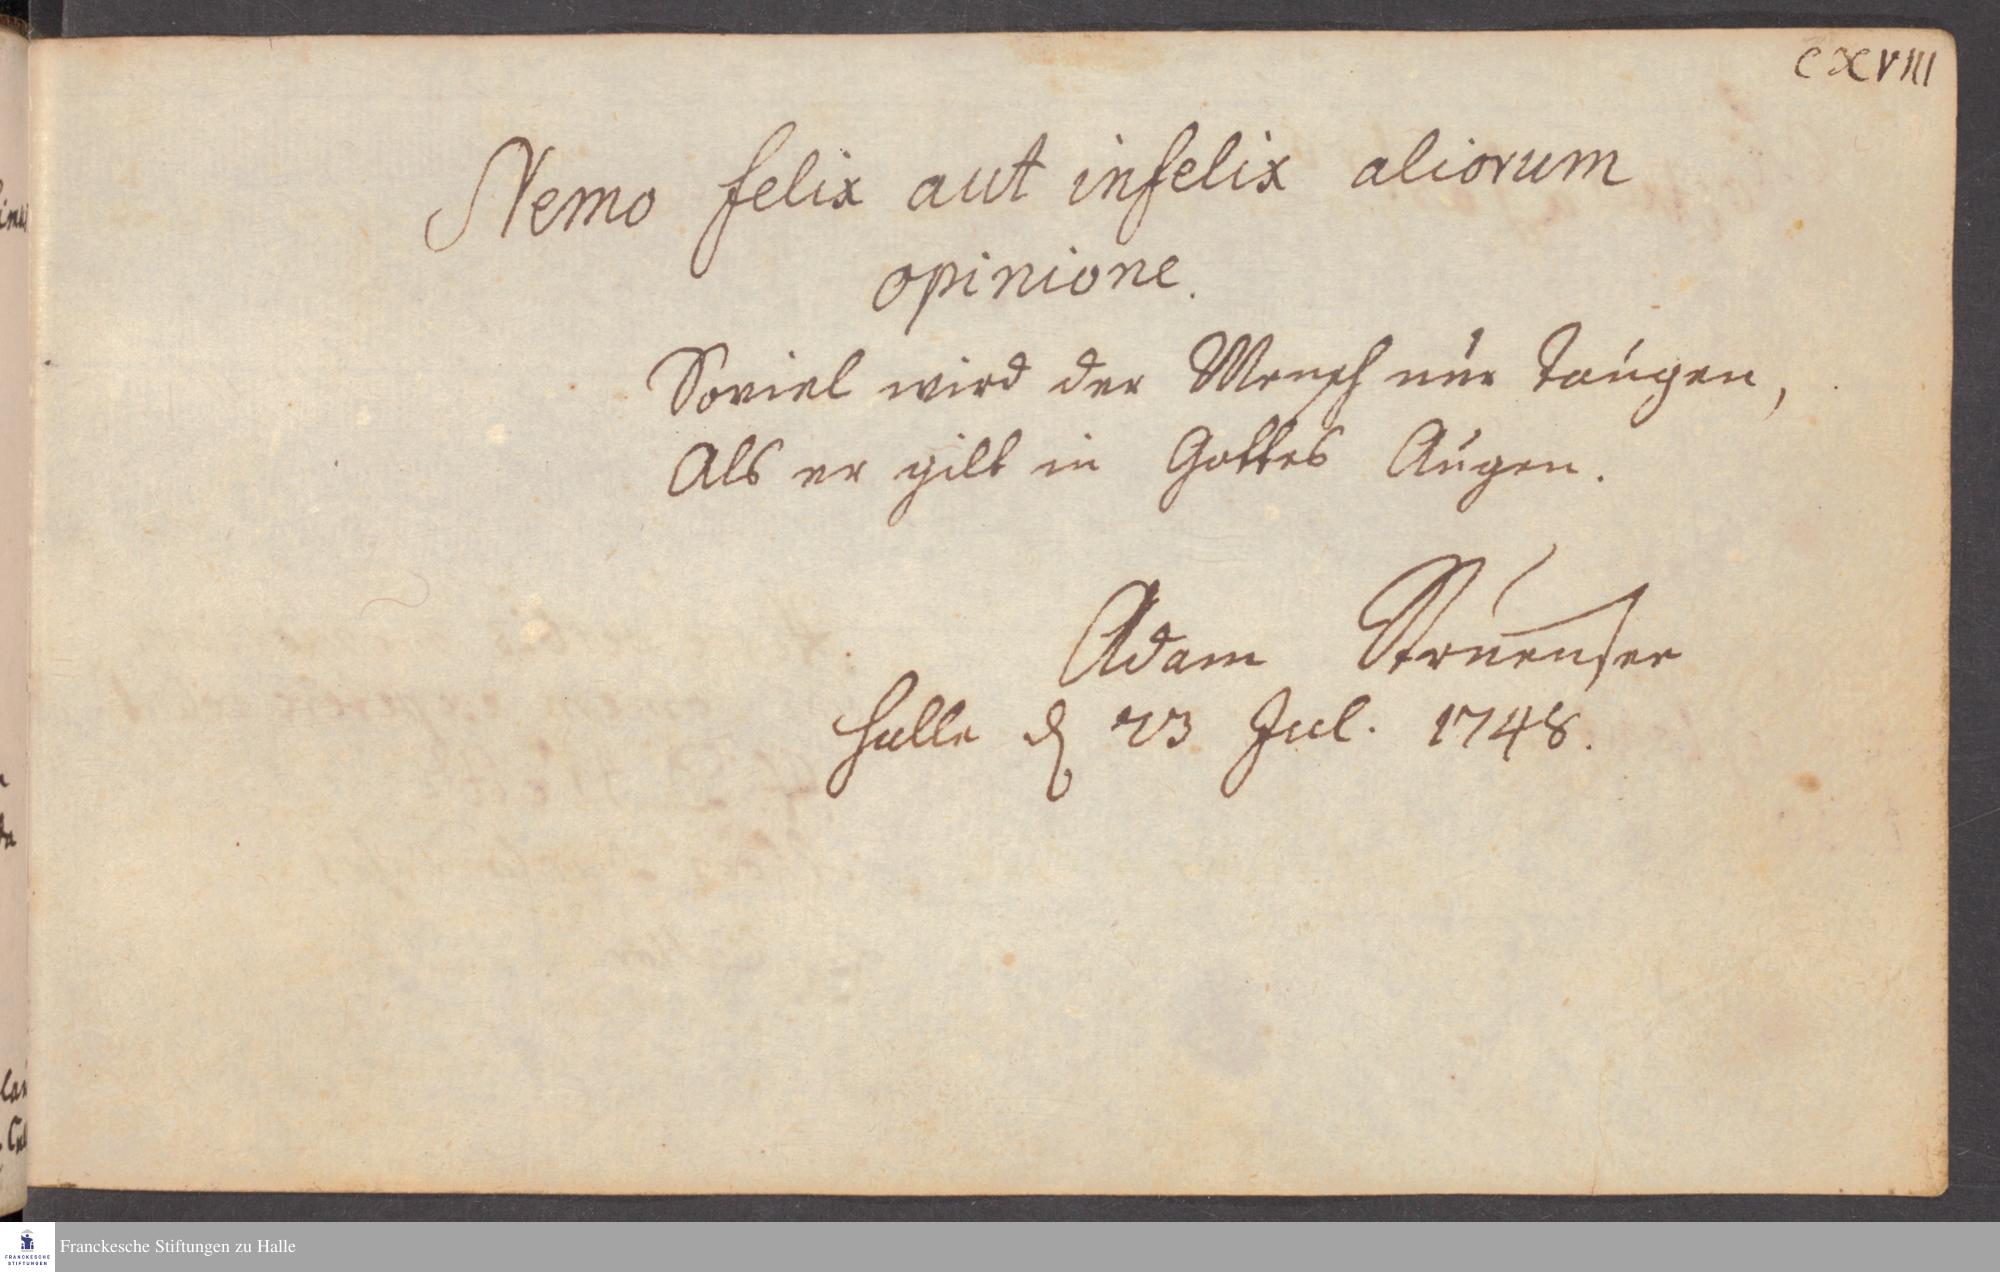 CXVIII
Nemo felix aut infelix aliorum
opinione.
Soviel wird der Mensch nur taugen,
Als er gilt in Gottes Augen.
Adam Struensee
Halle d 23 Jul. 1748.
FRANCKESCHE
STIFTUNGEN
Franckesche Stiftungen zu Halle